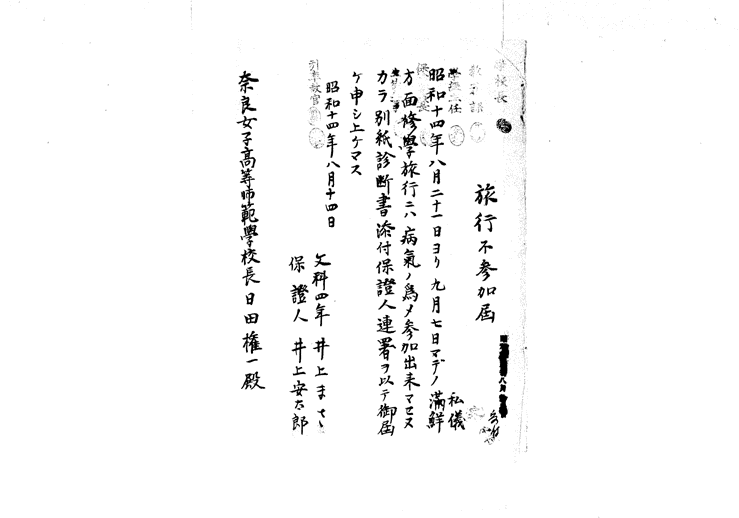 旅行不参加屆
私儀
昭和十四年八月二十一日ヨリ九月七日マデノ滿鮮
方面修學旅行ニハ病氣ノ爲メ参加出来マセヌ
カラ別紙診断書添付保證人連署ヲ以テ御屆
ケ申シ上ケマス
昭和十四年八月十四日
文科四年 井上まさ
保證人 井上安太郎
奈良女子高等師範學校長日田權一殿
學校長
教務課
引率教官